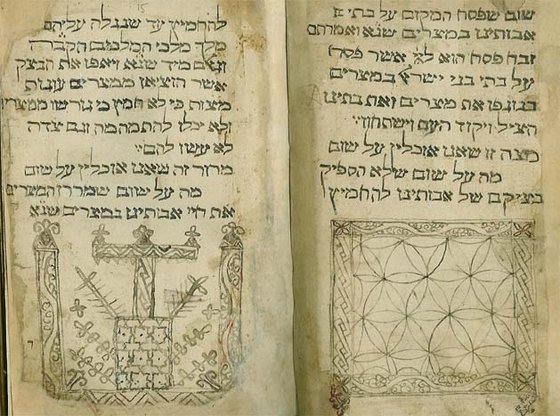 שום שפסח המקום על בתי א
אבותינו במצרים שנא ואמרתם
זבח פסח הוא אשר פסח
על בתי בני ישראל במצרים
בנוגפו את מצרים ואת בתינו
הציל ויקוד העם וישתחוו
מצה זו שאנו אוכלין על שום
מה על שום שלא הספיק
בציקם של אבותינו להחמיץ
להחמיץ עד שנגלה עליהם
מלך מלכי המלכים הקברה
וגאלם מיד שנא ויאפו את הבצק
אשר הוציאו ממצרים עוגות
מצות כי לא חמץ כי גורשו ממצרים
ולא יכלו להתמהמה וגם צדה
לא עשו להם
מרור זה שאנו אוכלין על שום
מה על שום שמררו המצרים
את חיי אבותינו במצרים שנא